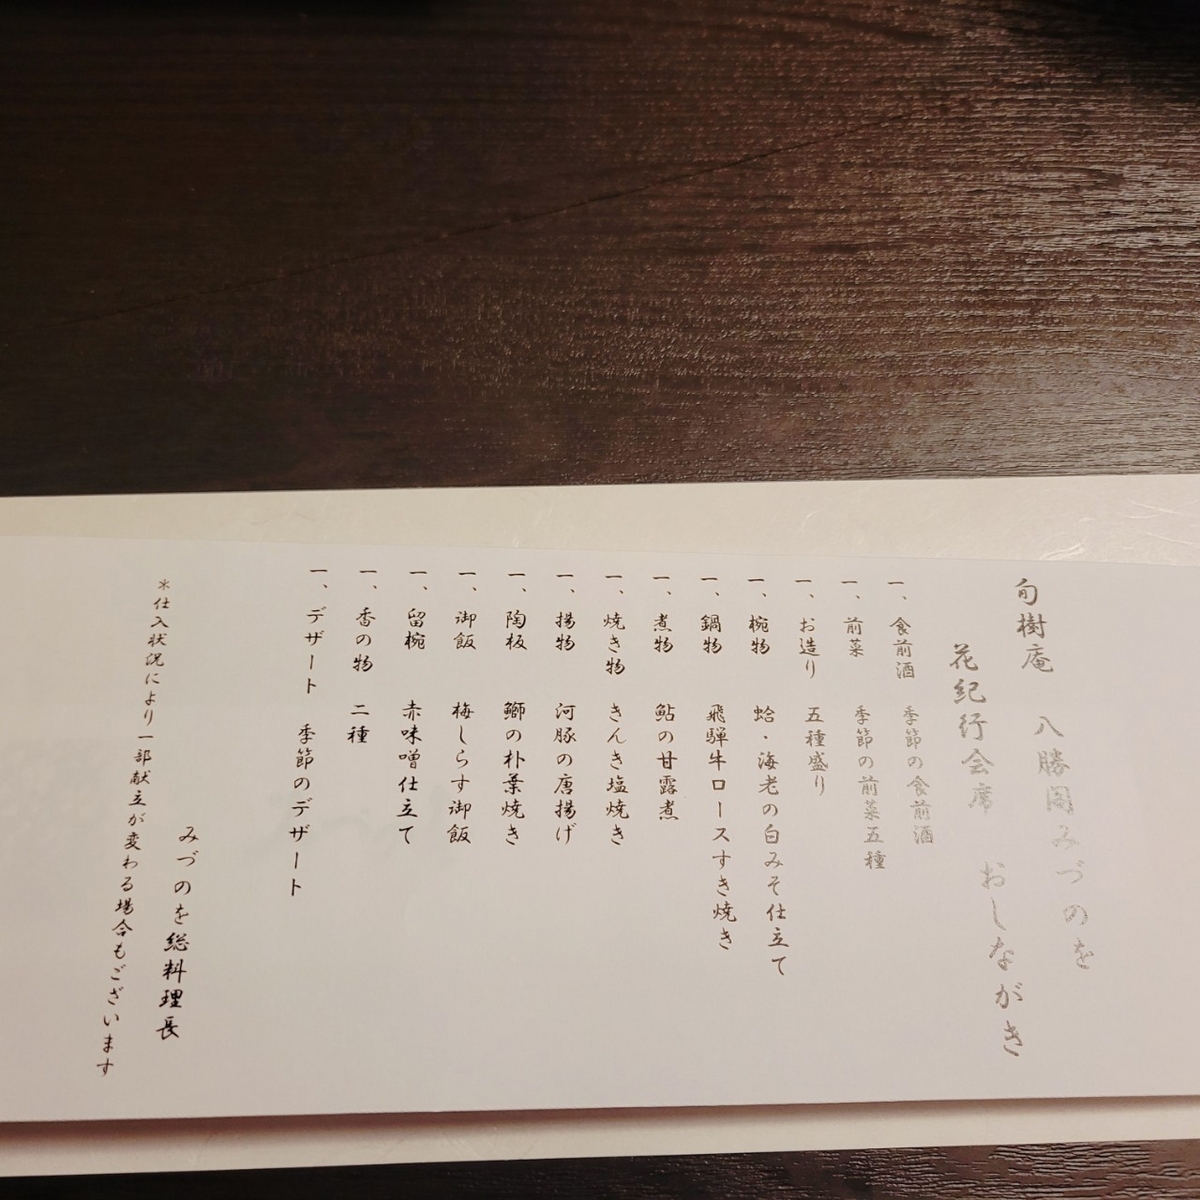 旬樹庵 八勝閣みづのを
花紀行会席 おしながき
一、食前酒 季節の食前酒
一、前菜 季節の前菜五種
一、お造り 五種盛り
一、椀物 蛤・海老の白みそ仕立て
一、鍋物 飛騨牛ロースすき焼き
一、煮物 鮎の甘露煮
一、焼き物 きんき塩焼き
一、揚物 河豚の唐揚げ
一、陶板 鰤の朴葉焼き
一、御飯 梅しらす御飯
一、留椀 赤味噌仕立て
一、香の物 二種
一、デザート 季節のデザート
みづのを総料理長
※仕入状況により一部献立が変わる場合もございます